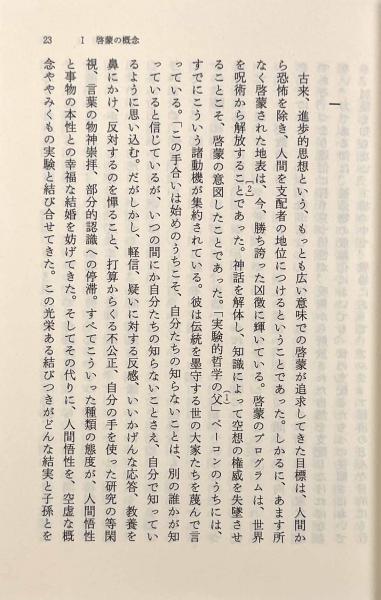 23 Ⅰ 啓蒙の概念
一
古来、進歩的思想という、もっとも広い意味での啓蒙が追求してきた目標は、人間か
ら恐怖を除き、人間を支配者の地位につけるということであった。しかるに、あます所
なく啓蒙された地表は、今、勝ち誇った凶徴に輝いている。啓蒙のプログラムは、世界
を呪術から解放することであった。神話を解体し、知識によって空想の権威を失墜させ
(2)
ることこそ、啓蒙の意図したことであった。「実験的哲学の父」ベーコンのうちには、
(1)
すでにこういう諸動機が集約されている。彼は伝統を墨守する世の大家たちを蔑んで言
っている。「この手合いは始めのうちこそ、自分たちの知らないことは、別の誰かが知
っていると信じているが、いつの間にか自分たちの知らないことさえ、自分で知ってい
るように思い込む。だがしかし、軽信、疑いに対する反感、いいかげんな応答、教養を
鼻にかけ、反対するのを憚ること、打算からくる不公正、自分の手を使った研究の等閑
視、言葉の物神崇拝、部分的認識への停滞。すべてこういった種類の態度が、人間悟性
と事物の本性との幸福な結婚を妨げてきた。そしてその代りに、人間悟性を、空虚な概
念ややみくもの実験と結び合せてきた。この光栄ある結びつきがどんな結実と子孫とを